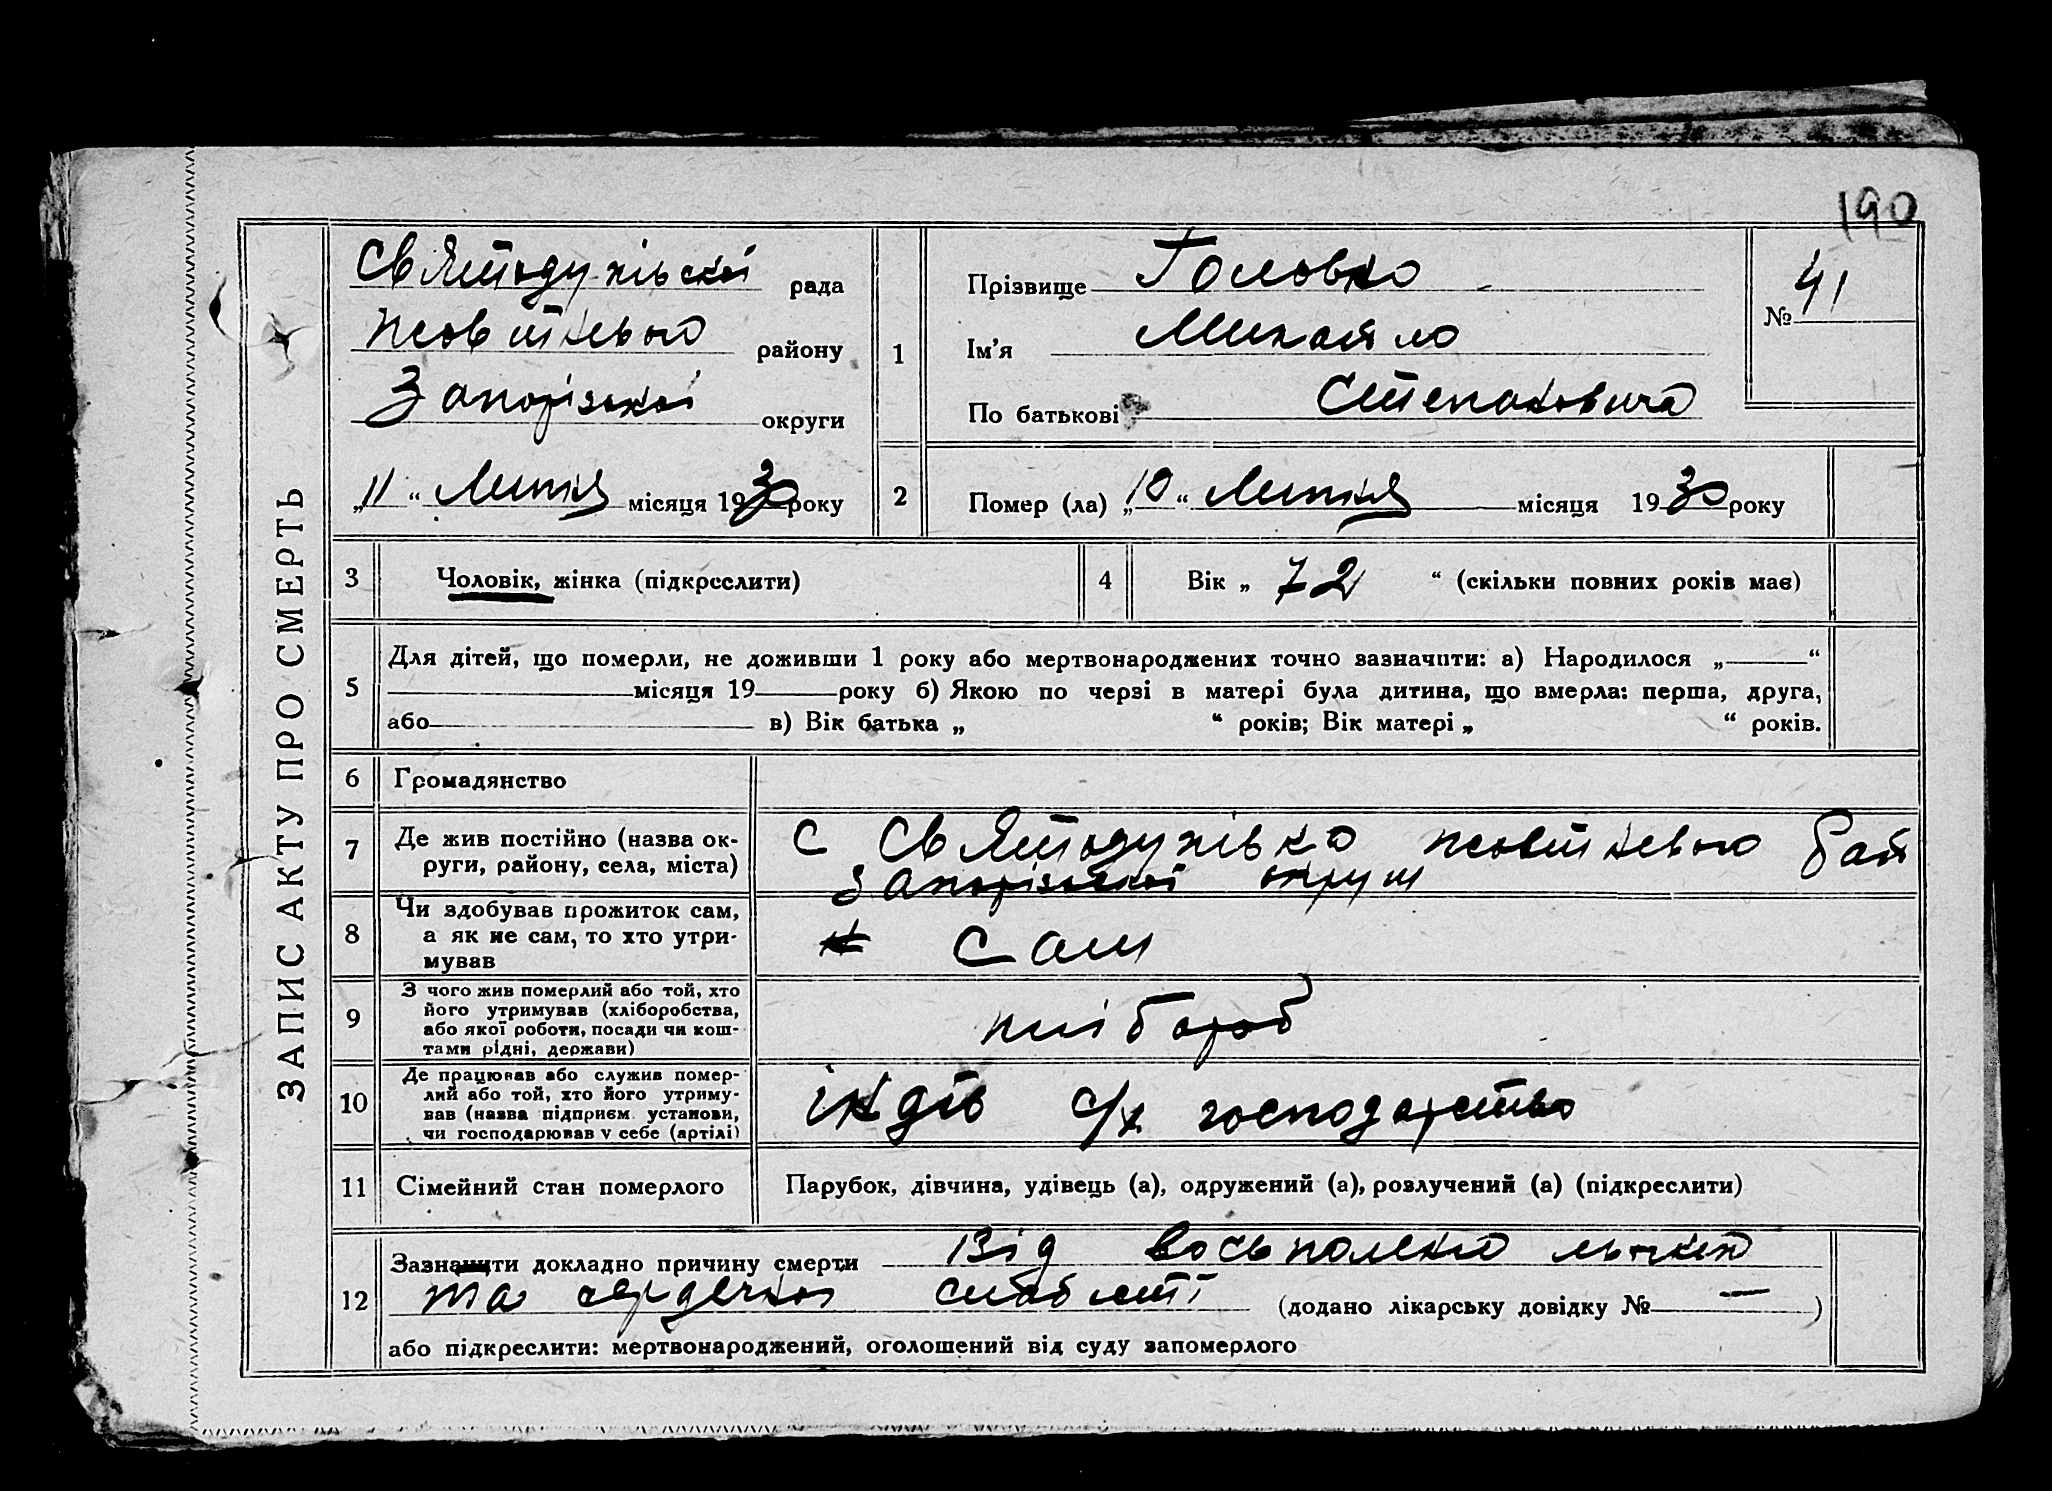 190
ЗАПИС АКТУ ПРО СМЕРТЬ
Святодухівської рада
Жовтневого району
Запорізької округи
„11“ Липня місяця 1930 року
1
Прізвище Головко
Ім'я Михайло
По батькові Степанович
№ 41
2
Помер (ла) „10“ Липня місяця 1930 року
3 Чоловік, жінка (підкреслити)
4 Вік „72“ (скільки повних років має)
5
Для дітей, що померли, не доживши 1 року або мертвонароджених точно зазначити: а) Народилося „ “
місяця 19 року б) Якою по черзі в матері була дитина, що вмерла: перша, друга,
або в) Вік батька „ “ років; Вік матері „ “ років.
6 Громадянство
7 Де жив постійно (назва ок-
руги, району, села, міста)
с Святодухівка жовтневого
Запорізької округи
8 Чи здобував прожиток сам,
а як не сам, то хто утри-
мував
сам
9 З чого жив померлий або той, хто
його утримував (хліборобства,
або якої роботи, посади чи кош-
тами рідні, держави)
хлібороб
10 Де працював або служив помер-
лий або той, хто його утриму-
вав (назва підприєм. установи,
чи господарював у себе (артілі)
індів с/х господарство
11 Сімейний стан померлого
Парубок, дівчина, удівець (а), одружений (а), розлучений (а) (підкреслити)
12 Зазначити докладно причину смерти Від
та сердечної слабості (додано лікарську довідку № — )
або підкреслити: мертвонароджений, оголошений від суду запомерлого